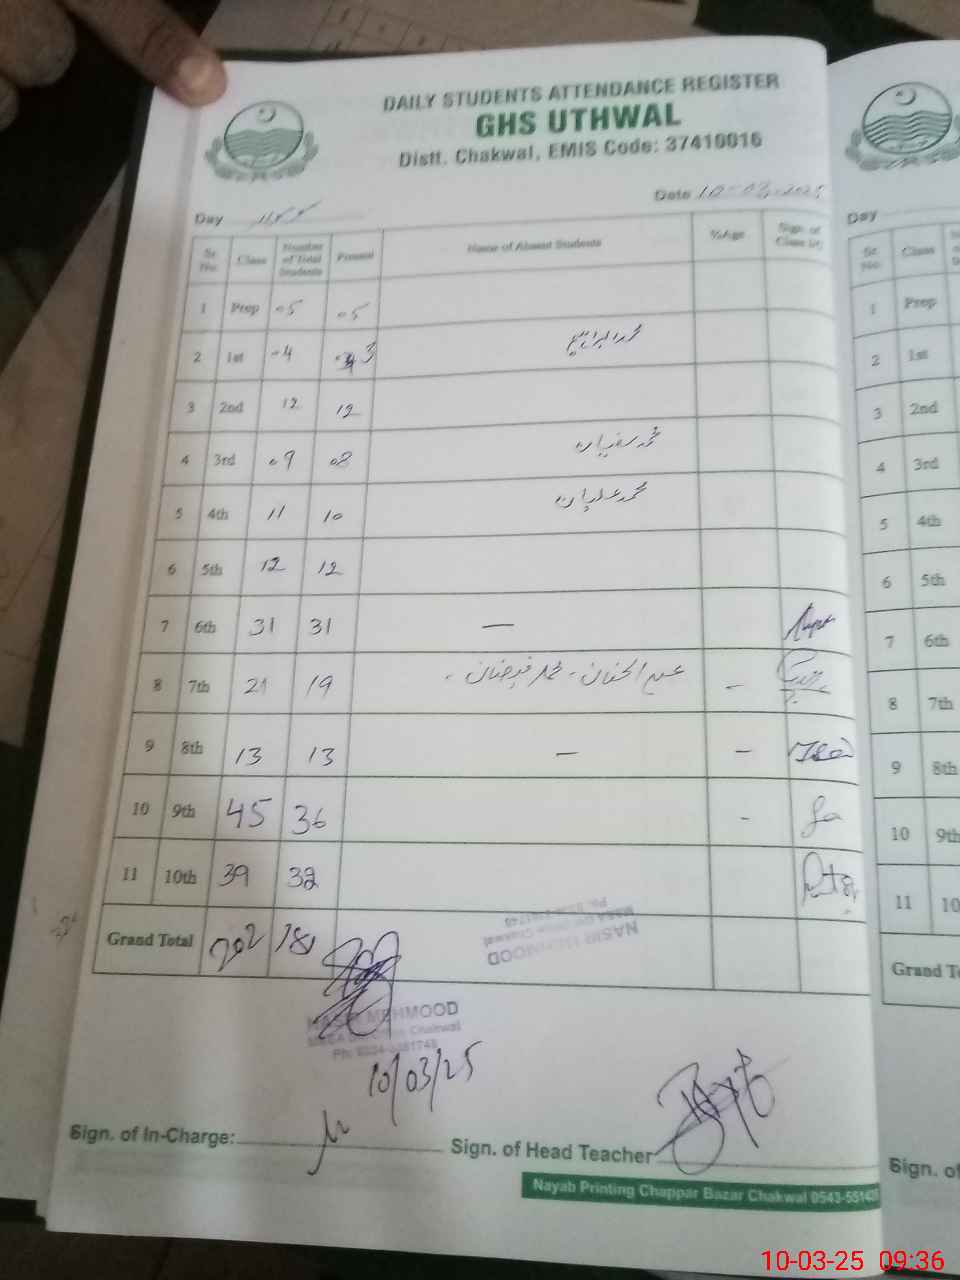 DAILY STUDENTS ATTENDANCE REGISTER
GHS UTHWAL
Distt. Chakwal, EMIS Code: 37410016
Date 10-03-2025
Day پیر
Sr. No. Class Number of Total Students Present Name of Absent Students %Age Sign. of Class I/c
1 Prep 05 05
2 1st 04 03 محمد ابراہیم
3 2nd 12 12
4 3rd 09 08 محمد سفیان
5 4th 11 10 محمد علیان
6 5th 12 12
7 6th 31 31 —
8 7th 21 19 عبدالحنان - محمد فیضان - -
9 8th 13 13 — -
10 9th 45 36 -
11 10th 39 32
Grand Total 202 181
NASIR MEHMOOD
NASIR MEHMOOD
10/03/25
Sign. of In-Charge:
Sign. of Head Teacher
Nayab Printing Chappar Bazar Chakwal
Day
Sr. No. Class
1 Prep
2 1st
3 2nd
4 3rd
5 4th
6 5th
7 6th
8 7th
9 8th
10 9th
11 10
Grand T
Sign. of
10-03-25 09:36